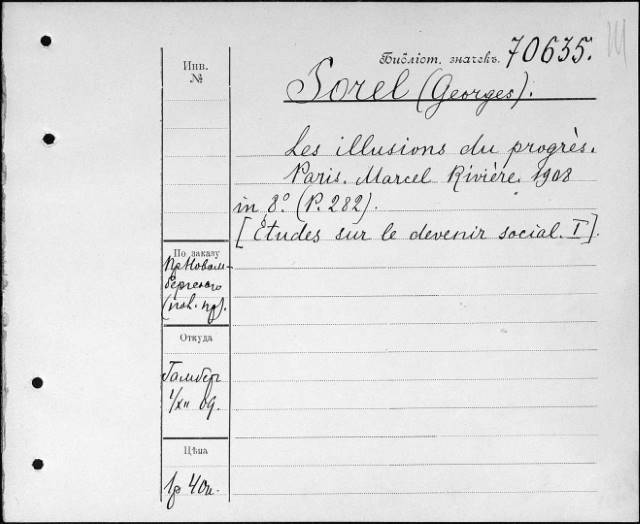 Библіот. значекъ. 70635.
Инв.
№
Sorel (Georges).
Les illusions du progrès.
Paris. Marcel Rivière. 1908
in 8.° (P. 282).
[Études sur le devenir social. I].
По заказу
Откуда
Гамбер
1/XII 09.
Цѣна
1р 40к.